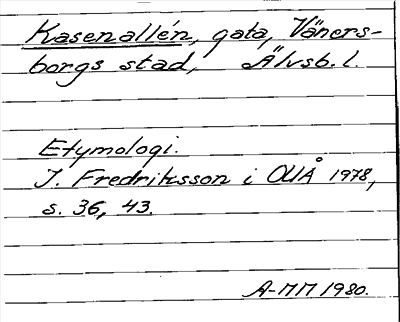 Kasenallén, gata, Väners-
borgs stad, Älvsb. l.
Etymologi.
I. Fredriksson i OUÅ 1978,
s. 36, 43.
A-MM 1980.